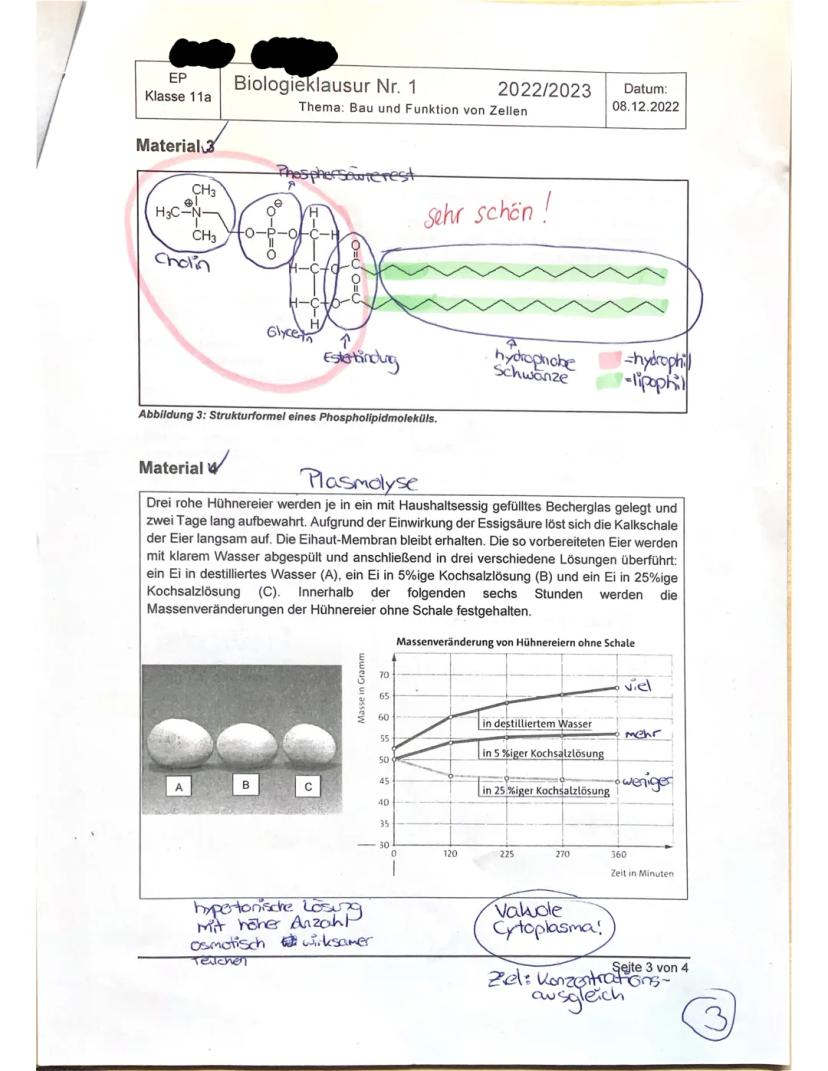 EP
Klasse 11a
Biologieklausur Nr. 1 2022/2023
Thema: Bau und Funktion von Zellen
Datum:
08.12.2022
Material 3
Phosphorsäurerest
CH₃
H₃C–N
⊕
CH₃
O–P–O
O⊖
O
H
C–H
H–C–O
H–C–O
H
O
C
O
C
sehr schön!
Cholin
Glycerin
Esterbindung
hydrophobe
Schwänze
=hydrophil
=lipophil
Abbildung 3: Strukturformel eines Phospholipidmoleküls.
Material 4
Plasmolyse
Drei rohe Hühnereier werden je in ein mit Haushaltsessig gefülltes Becherglas gelegt und
zwei Tage lang aufbewahrt. Aufgrund der Einwirkung der Essigsäure löst sich die Kalkschale
der Eier langsam auf. Die Eihaut-Membran bleibt erhalten. Die so vorbereiteten Eier werden
mit klarem Wasser abgespült und anschließend in drei verschiedene Lösungen überführt:
ein Ei in destilliertes Wasser (A), ein Ei in 5%ige Kochsalzlösung (B) und ein Ei in 25%ige
Kochsalzlösung (C). Innerhalb der folgenden sechs Stunden werden die
Massenveränderungen der Hühnereier ohne Schale festgehalten.
A B C
Massenveränderung von Hühnereiern ohne Schale
Masse in Gramm
70
65
60
55
50
45
40
35
30
viel
in destilliertem Wasser
mehr
in 5 %iger Kochsalzlösung
weniger
in 25 %iger Kochsalzlösung
0 120 225 270 360
Zeit in Minuten
hypotonische Lösung
mit hoher Anzahl
osmotisch wirksamer
Teilchen
Vakuole
Cytoplasma!
Seite 3 von 4
Ziel: Konzentrations-
ausgleich
3